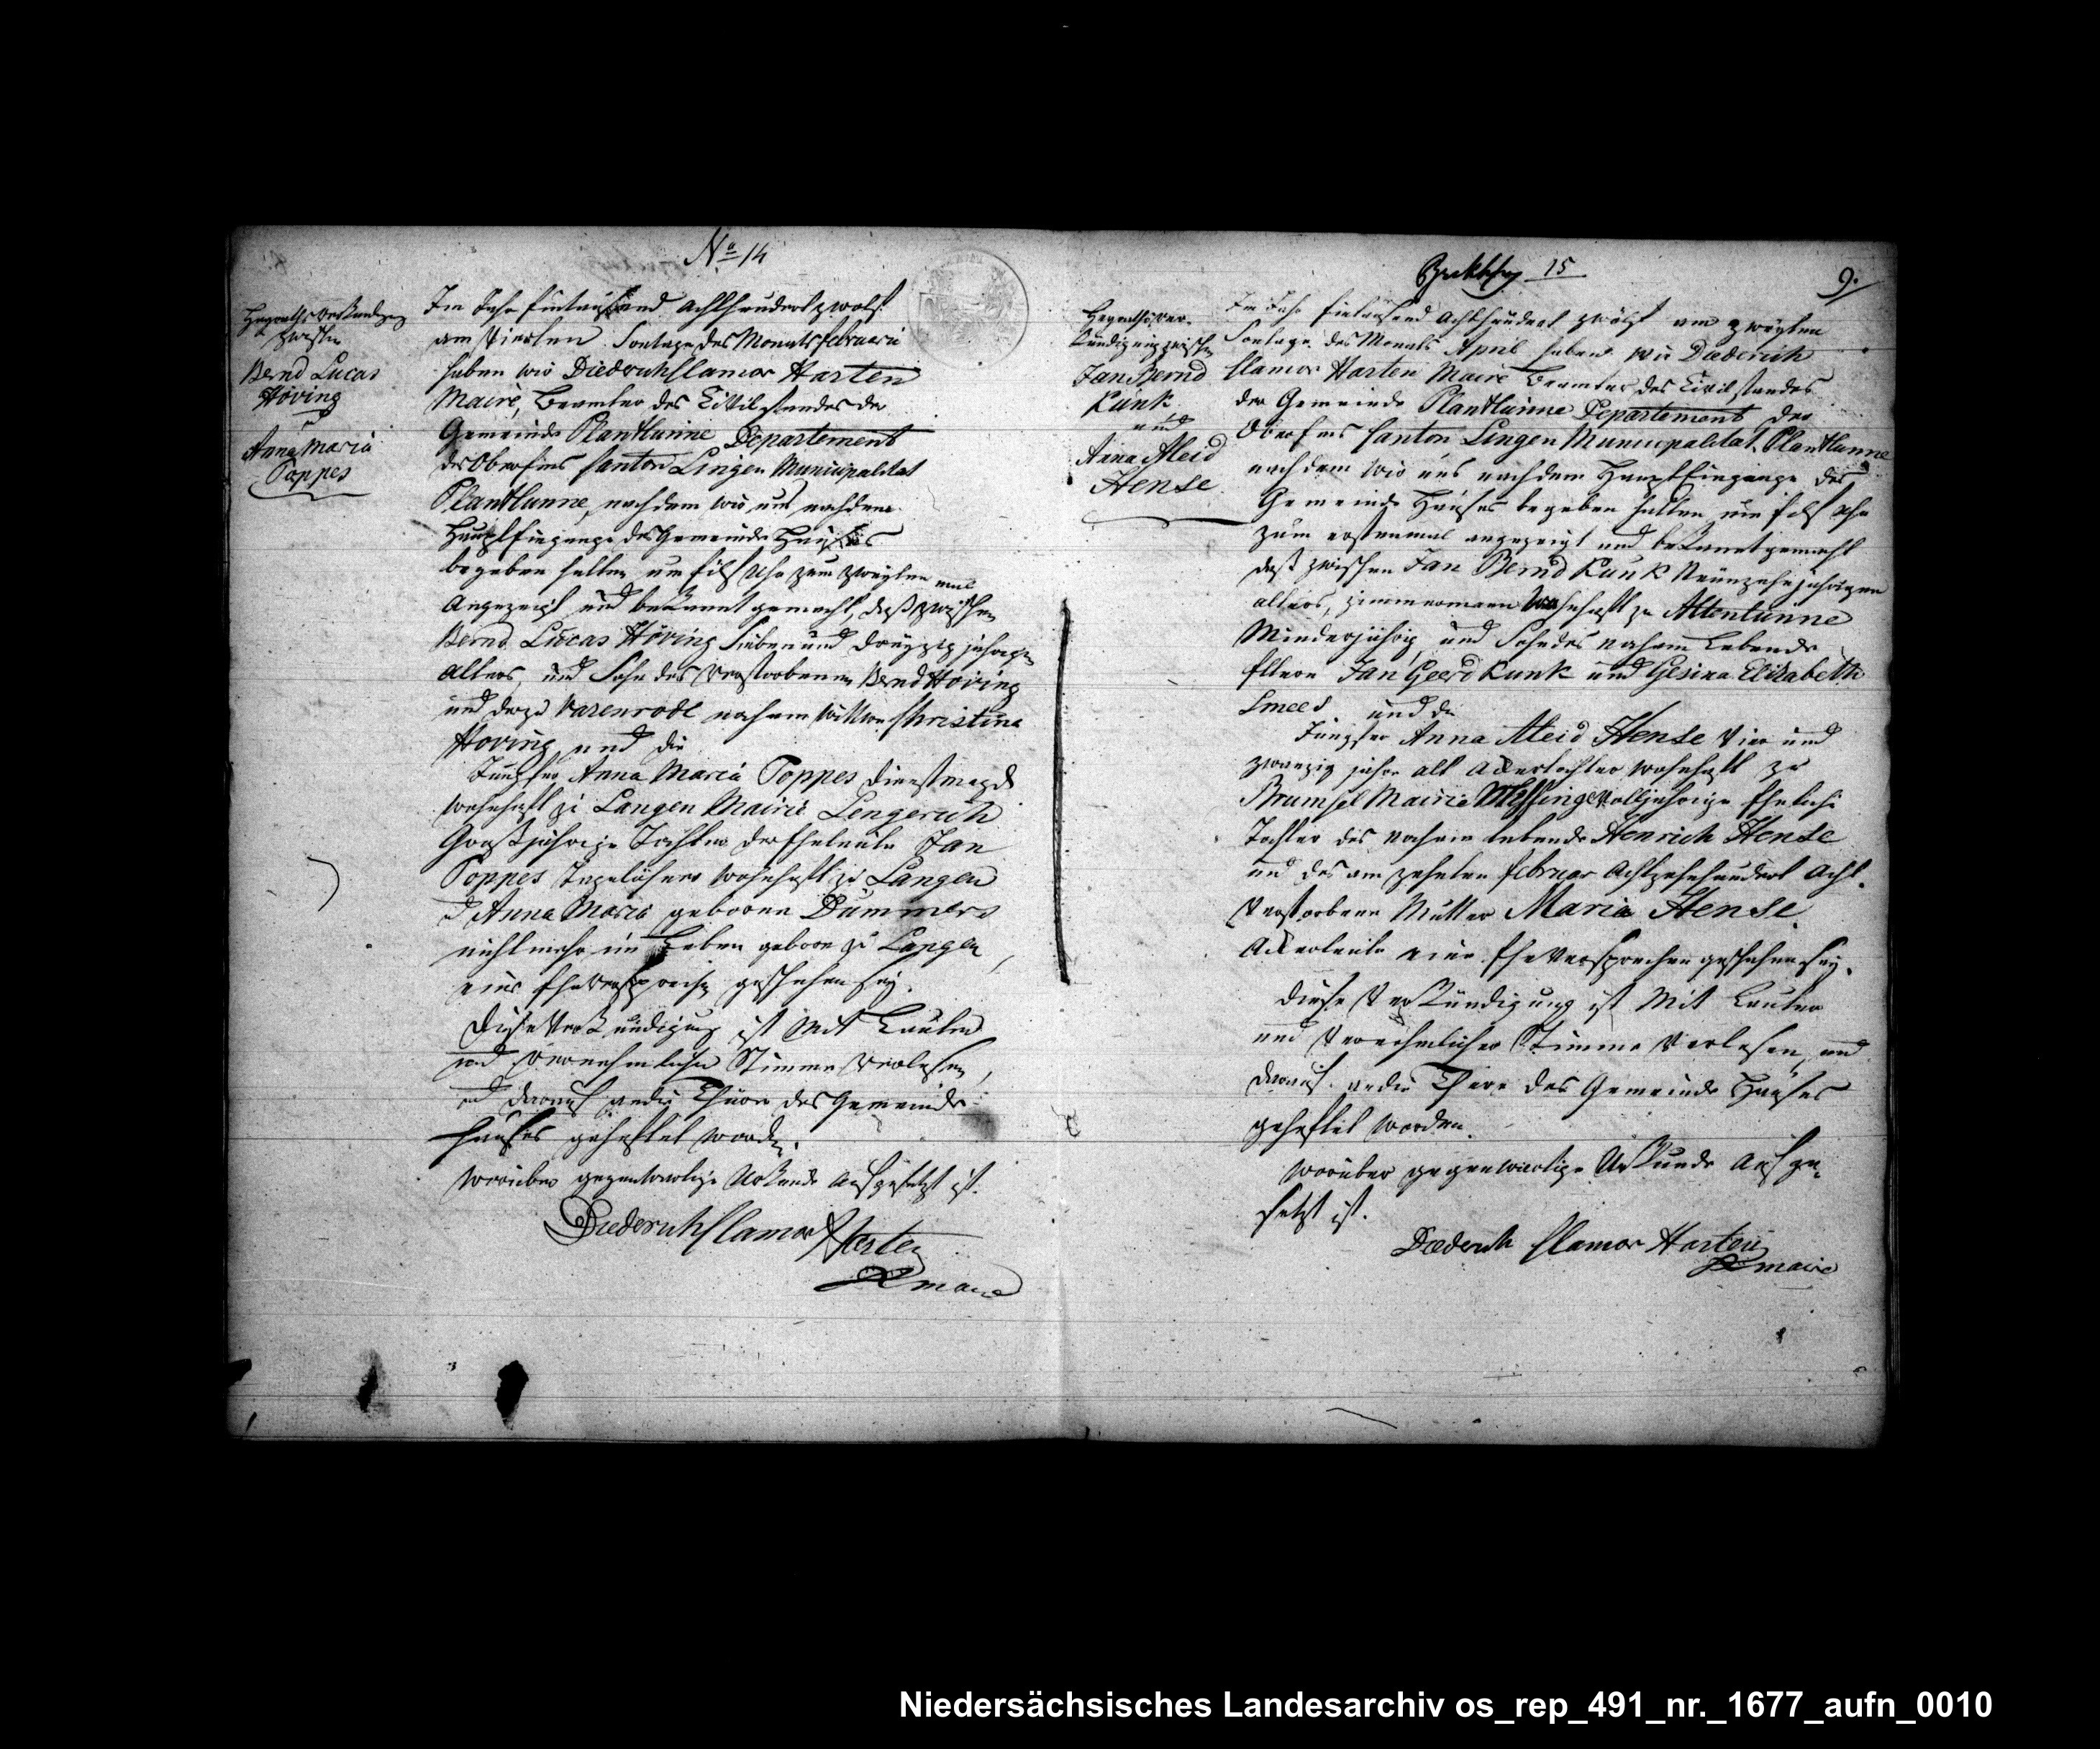 No 14
Heyraths Verkündigung
zwischen
Bernd Lucas
Höving
Anna Maria
Toppes
Im Jahr Eintausend Achthundert zwolf
am Vierten Sontage des Monats februarii
haben wir Diederich Clamor Harten
Maire, Beamter des Civilstandes der
Gemeinde Plantlünne Departement
der OberEms Canton Lingen Municipalitat
Plantlunne, nachdem wir uns nach dem
HauptEingange des Gemeinde Hauses
begeben hatten um Eilf Uhr zum zweyten mal
Angezeigt und bekannt gemacht, daß zwischen
Bernd Lucas Höving Sieben und dreyzig jahrigen
Alters, und Sohn des Verstorbenen Bernd Höving
und der zu Varenrode nahrem Wittwe Christina
Hoving und die
Jungfer Anna Maria Toppes Dienstmagd
wohnhaft zu Langen Mairie Lengerich
Großjährige Tochter der Eheleute Jan
Toppes Tagelöhner wohnhaft zu Langen
d Anna Maria geboren Dümmers
nicht mehr im Leben geboren zu Langen
eine Eheversprechen geschehen sey.
Diese Verkündigung ist Mit Lauter
und Vernehmlicher Stimme Verlesen,
und darauf an die Thüre des Gemeinde
Hauses geheftet worden.
Worüber gegenwärtige Urkunde Aufgesetzt ist.
Diederich Clamor Harten
maire
15
9.
Heyrathsver-
kündigung zwischen
Jan Bernd
Kunk
und
Anna Aleid
Hense
Im Jahr Eintausend Achthundert zwölf am zweyten
Sontage des Monats April haben wir Diederich
Clamor Harten Maire Beamter des Civilstandes
der Gemeinde Plantlünne Departement der
OberEms Canton Lingen Municipalitat Plantlunne
nachdem wir uns nach dem HauptEingange des
Gemeinde Hauses begeben hatten um Eilf Uhr
zum erstenmal angezeigt und bekannt gemacht
daß zwischen Jan Bernd Kunk Neunzehnjahrigen
alters, zimmermann wohnhaft zu Altenlünne
Minderjährig, und Sohn des nahrem Lebende
Eltern Jan Geerd Kunk und Gesina Elisabeth
Smeed und die
Jungfer Anna Aleid Hense Vier und
zwanzig jahre alt Ackertochter wohnhaft zu
Brumsel Mairie Messingen Volljahrige Eheliche
Tochter des nahrem lebende Henrich Hense
und der am zehnten februar Achtzehnhundert Acht
Verstorbene Mutter Maria Hense
Ackerleute eine Eheversprechen geschehen sey.
Diese Verkündigung ist Mit Lauter
und Vernehmlicher Stimme Verlesen, und
darauf an die Thüre des Gemeinde Hauses
geheftet worden.
Worüber gegenwärtige Urkunde Aufge-
setzt ist.
Diederich Clamor Harten
maire
Niedersächsisches Landesarchiv os_rep_491_nr._1677_aufn_0010